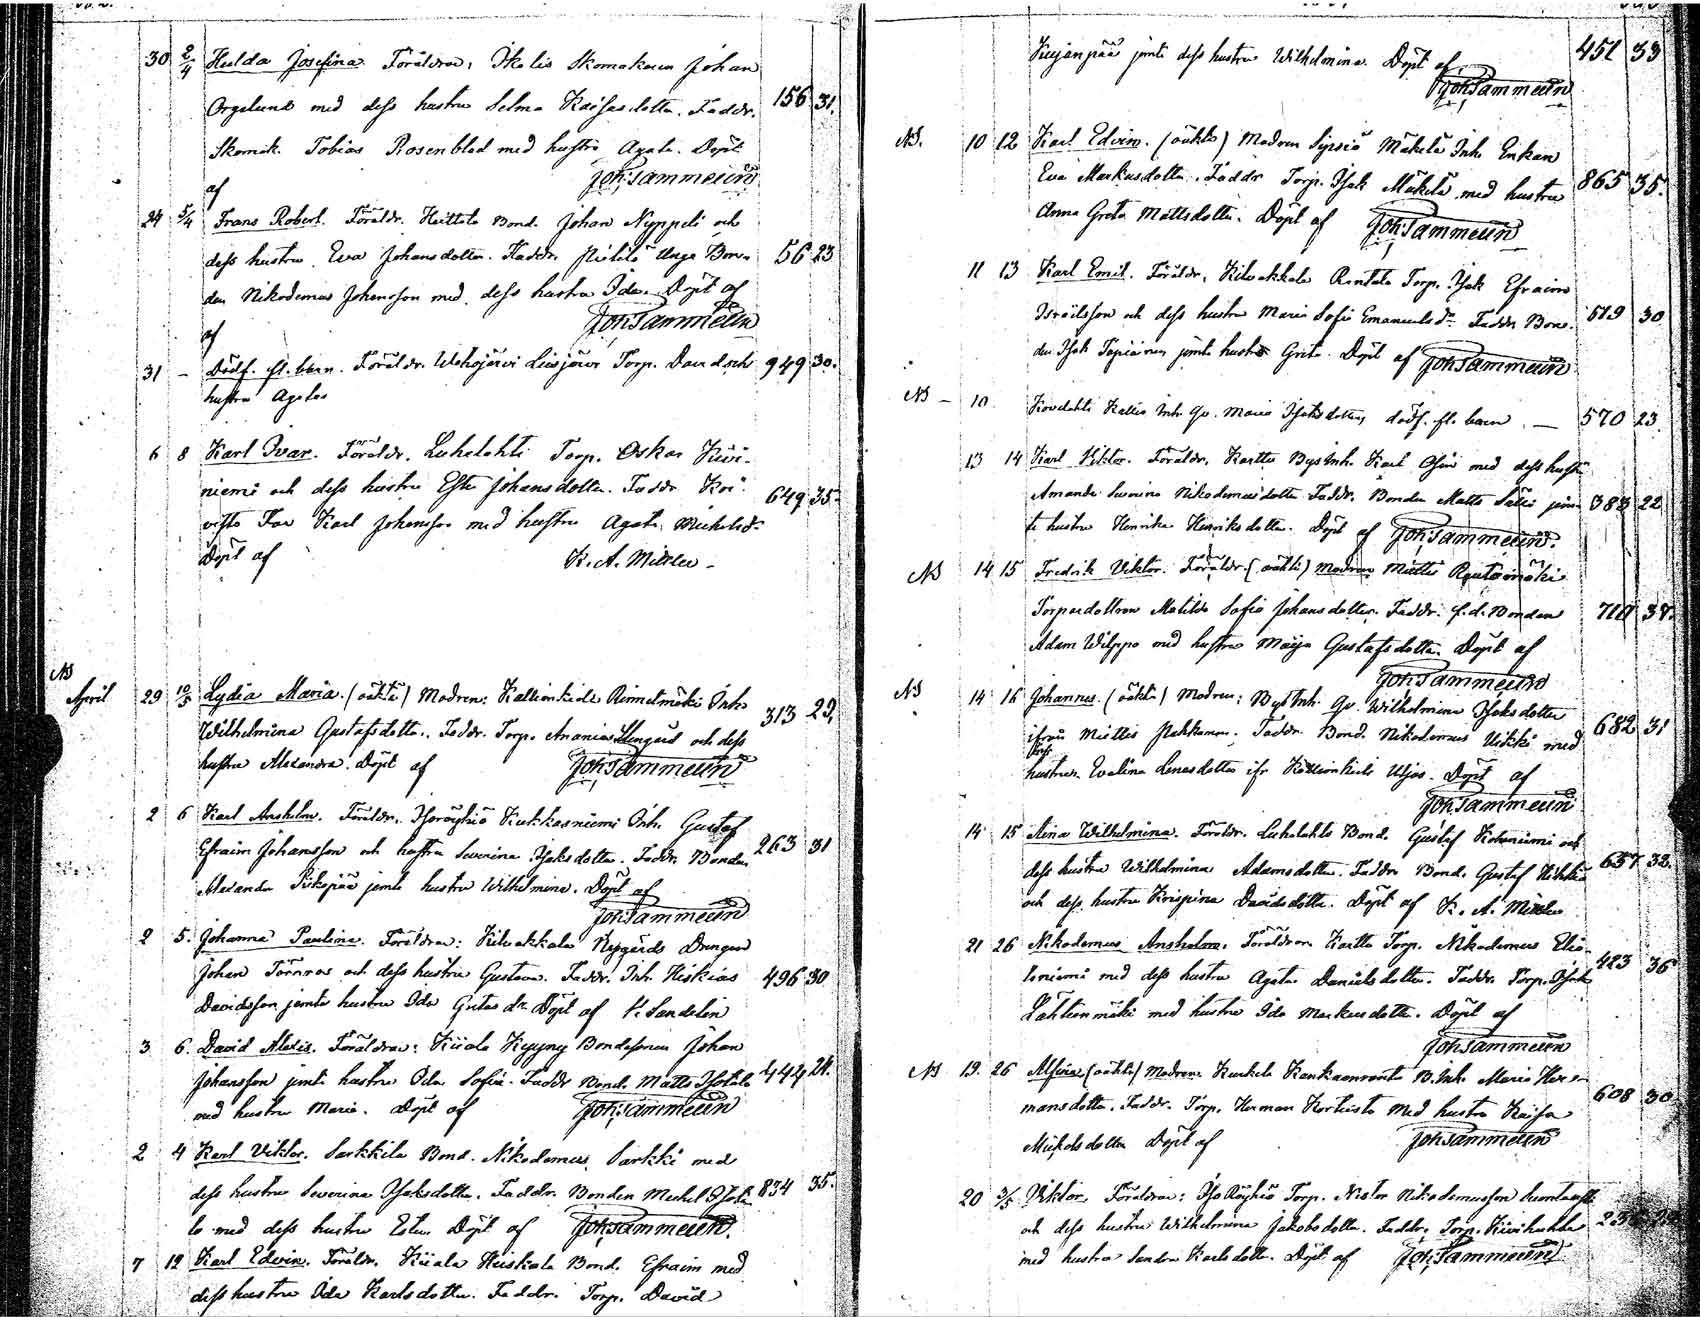 30 2/4 Hulda Josefina. Föräldrar: Ikalis Skomakaren Johan
med dess hustru Selma Kaisasdotter. Faddr. 156 31.
Skomak. Tobias Rosenblad med hustru Agata. Döpt
af Joh: Tammelin
24 5/4 Frans Robert. Föräldr. Heittola Bond. Johan Nyppeli och
dess hustru Eva Johansdotter. Faddr. Unga Bon- 56 23
den Nikodemus Johansson med dess hustru Ida. Döpt af
af Joh: Tammelin
31 – Dödf. fl. barn. Föräldr. Torp. David och 949 30.
hustru Agata
6 8 Karl Ivar. Föräldr. Luhalahti Torp. Oskar Kivi-
niemi och dess hustru Ester Johansdotter. Faddr. Koi- 649 35.
visto Far Karl Johansson med hustru Agata Mickelsdr
Döpt af K. A. Mider –
NB
April 29 10/5 Lydia Maria. (oäkta) Modren: Kallionkieli Inh.
Wilhelmina Gustafsdotter. Faddr. Torp. Ananias och dess 313 29.
hustru Alexandra. Döpt af Joh: Tammelin
2 6 Karl Anshelm. Föräldr. Isoröyhiö Kukkasniemi Inh. Gustaf
Efraim Johansson och hustru Severina Isaksdotter. Faddr. Bonden 263 31
Alexander Piskopää jemte hustru Wilhelmina. Döpt af
Joh: Tammelin
2 5. Johanna Paulina. Föräldrar: Kilvakkala Nygårds Drengen
Johan Törnroos och dess hustru Gustava. Faddr. Inh. Hiskias 496 30
Davidsson jemte hustru Ida Gretas dr. Döpt af K. Sandelin
3 6. David Alexis. Föräldrar: Kiiala Kyyny Bondesonen Johan
Johansson jemte hustru Ida Sofia. Faddr. Bond. Matts Isotalo 444 24.
med hustru Maria. Döpt af Joh: Tammelin
2 4 Karl Viktor. Sarkkila Bond. Nikodemus Sarkki med
dess hustru Severina Isaksdotter. Faddr. Bonden Mickel Isota- 834 35.
lo med dess hustru Ester. Döpt af Joh: Tammelin.
7 12 Karl Edvin. Föräldr. Kiiala Heiskala Bond. Efraim med
dess hustru Ida Karlsdotter. Faddr. Torp. David
Kujanpää jemte dess hustru Wilhelmina. Döpt af 451 33
Joh: Tammelin
NB. 10 12 Karl Edvin. (oäkta) Modren Sipsiö Mäkelä Inh. Enkan
Eva Markusdotter. Faddr. Torp. Isak Mäkelä med hustru 865 35.
Anna Greta Mattsdotter. Döpt af Joh: Tammelin
11 13 Karl Emil. Föräldr. Kilvakkala Rantala Torp. Isak Efraim
Israelsson och dess hustru Maria Sofia Emanuelsdr. Faddr. Bon- 519 30
den Isak Tapiainen jemte hustru Greta. Döpt af Joh: Tammelin
NB – 10 Kovelahti Kallio Inh. Qv. Maria Isaksdotters dödf. fl. barn – 570 23
13 14 Karl Viktor. Föräldr. Kartto Bys Inh. Karl med dess hustru
Amanda Severina Nikodemusdotter. Faddr. Bonden Matts Sälli jem- 383 22
te hustru Henrika Henriksdotter. Döpt af Joh: Tammelin.
NB 14 15 Fredrik Viktor. Föräldr. (oäkta) Modren Miettis Rautamäki
Torpardottren Matilda Sofia Johansdotter. Faddr. f.d. Bonden 711 37.
Adam Wilppo med hustru Maija Gustafsdotter. Döpt af
Joh: Tammelin
NB 14 16 Johannes. (oäkta) Modren: Bys Inh. Qv. Wilhelmina Isaksdotter
ifrån Miettis Pakkanen. Faddr. Bond. Nikodemus Uikki med 682 31
dess hustru Evelina Lenasdotter ifr. Kallionkieli Uljas. Döpt af
Joh: Tammelin
14 15 Aina Wilhelmina. Föräldr. Luhalahti Bond. Gustaf och
dess hustru Wilhelmina Adamsdotter. Faddr. Bond. Gustaf 657 32.
och dess hustru Krispina Davidsdotter. Döpt af K. A. Mider
21 26 Nikodemus Anshelm. Föräldrar Kartto Torp. Nikodemus
med dess hustru Agata Danielsdotter. Faddr. Torp. Isak 423 36
Lähteenmäki med hustru Ida Markusdotter. Döpt af
Joh: Tammelin
NB 19. 26 Alfina (oäkta) Modren: Kurkela Kankaanranta B. Inh. Maria Her-
mansdotter. Faddr. Torp. Herman Korkiasto med hustru Kaisa 608 30
Mickelsdotter Döpt af Joh: Tammelin
20 3/5 Viktor. Föräldrar: Iso Röyhiö Torp. Nestor Nikodemusson
och dess hustru Wilhelmina Jakobsdotter. Faddr. Torp.
med hustru Sandra Karlsdotter. Döpt af Joh: Tammelin